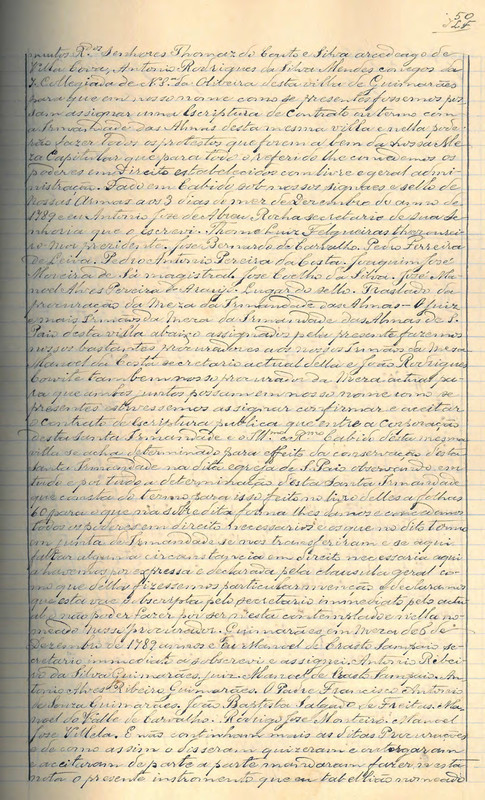 50
327
muitos R.dos Senhores Thomaz do Couto e Silva arcediago de
Villa Cova, Antonio Rodrigues da Silva Mendes conegos da
Collegiada de N. S.ra da Oliveira desta villa de Guimarães
para que em nosso nome como se presentes fossemos pos-
sam assignar uma Escriptura de Contrato em termo com
a Irmandade das Almas desta mesma villa e nella pode-
rão fazer todos os protestos que forem a bem da nossa Me-
za Capitular que para todo o referido lhe concedemos os
poderes em Direito estabelecidos com livre e geral admi-
nistração. Dado em Cabido sob nossos signaes e sello de
nossas Armas aos 3 dias do mez de Dezembro de anno de
1789 e eu Antonio José de Abreu Rocha secretario de sua Se-
nhoria que o escrevi. Thome Luiz Felgueiras thezourei-
ro Mor prezidente. Jose Bernardo de Carvalho. Pedro Ferreira
de Leiva. Pedro Antonio Pereira da Costa. Joaquim José
Moreira de Sá magistral. Jose Coelho da Silva. José Ma-
noel Alves Pereira de Araujo. Lugar do sello. Traslado da
procuração da Meza da Irmandade das Almas — O Juiz
e mais Irmãos da Meza da Irmandade das Almas de S.
Paio desta villa abaixo assignados pelos presente fazemos
nossos bastantes procuradores aos nossos Irmãos da Mesa
Manoel da Costa secretario actual della e João Rodrigues
tambem nosso procurador da Meza actual pa-
ra que ambos juntos possam em nosso nome como se
presentes estivessemos assignar confirmar e aceitar
o contrato de Escriptura publica que entre a corporação
desta santa Irmandade e o Ill.mo e R.mo Cabido desta mesma
villa se acha determinado para effeito da conservação desta
Santa Irmandade na dita egreja de S. Paio observando em
tudo e por tudo a determinação desta Santa Irmandade
que consta do termo para isso feito no livro delles a folhas
60 para o que na sobredita forma lhes damos e concedemos
todos os poderes em direito necessarios e os que no dito termo
em junta de Irmandade se nos transferiram e se aqui
faltar alguma circunstancia em direito necessaria aqui
a havemos por expressa e declarada pela clausula geral co-
mo que della fizessemos particular menção e declaramos
que esta vae subscripta pelo secretario immediato pelo actu-
al não poder fazer por ser nesta contemplado e nella no-
meado nosso procurador. Guimarães em Meza de 6 de
Dezembro de 1789 annos e Eu Manoel de Crasto Sampaio se-
cretario immediato a subscrevi e assignei. Antonio Ribei-
ro da Silva Guimarães, Juiz. Manoel de Crasto Sampaio. An-
tonio Alves Ribeiro Guimarães. O Padre Francisco Antonio
de Souza Guimarães. João Baptista Salgado de Freitas. Ma-
noel do Valle de Carvalho. Rodrigo José Monteiro. Manoel
José Villela. E não continham mais as ditas Procurações
e de como assim o disseram quizeram e outorgaram
e aceitaram de parte a parte mandaram fazer nesta
nota o presente instromento que eu tabellião nomeado